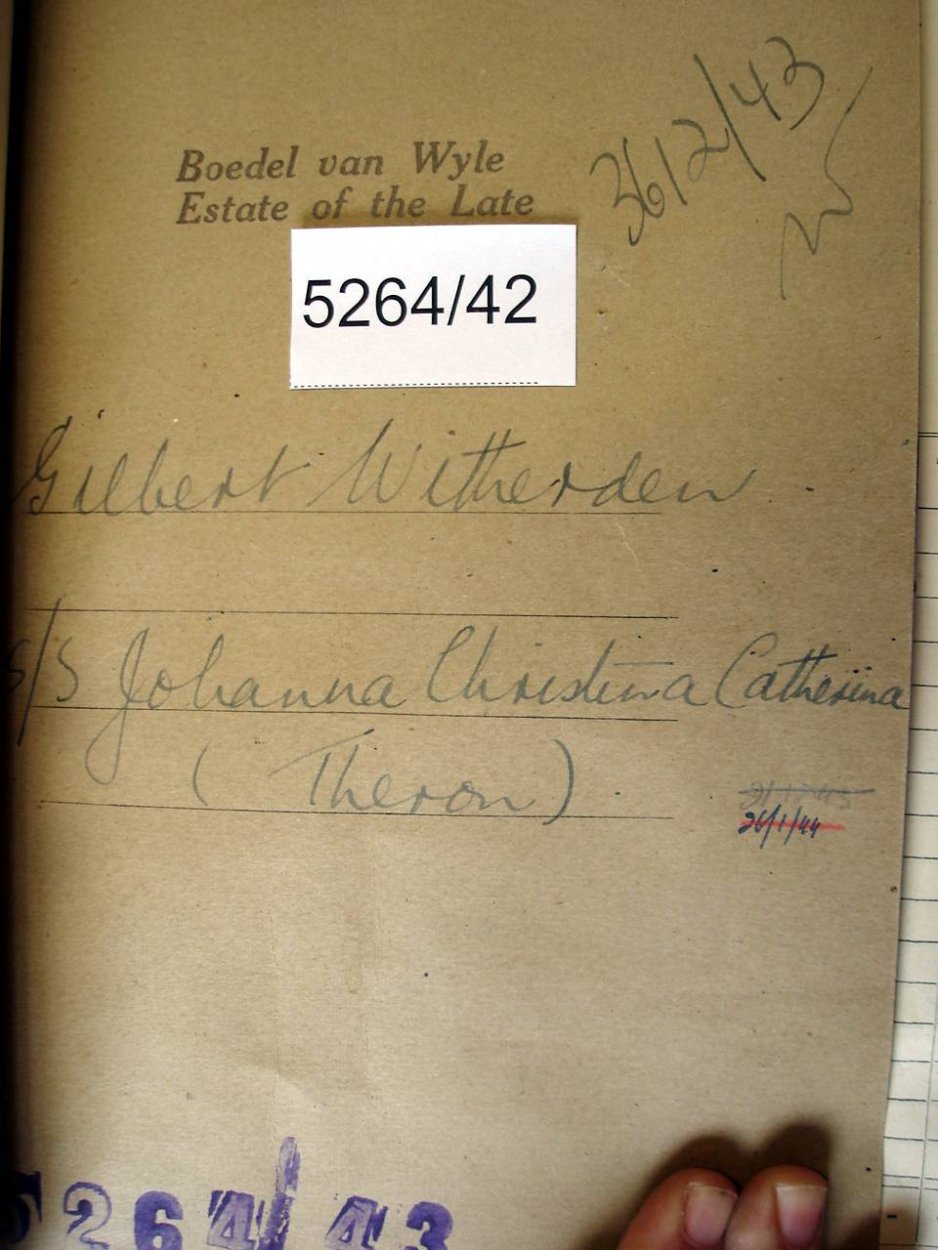 3612/43
Boedel van Wyle
Estate of the Late
5264/42
Gilbert Witherden
S/S Johanna Christina Catherina
(Theron)
26/1/44
5264/43